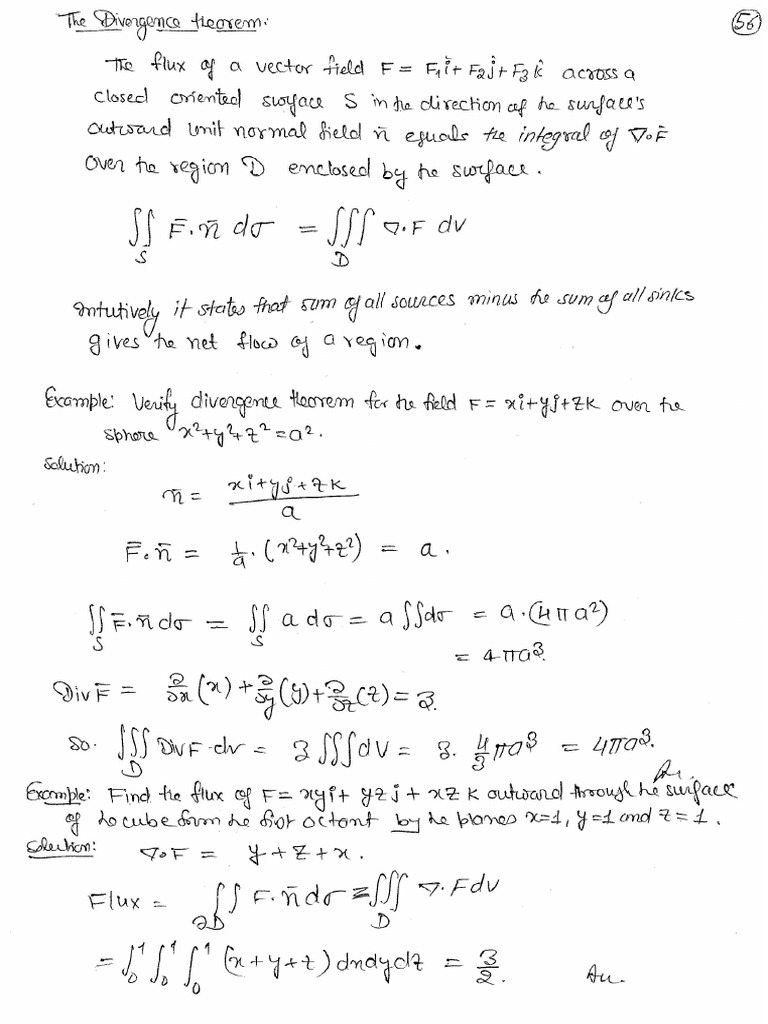 The Divergence theorem:
56
The flux of a vector field F = F₁î + F₂ĵ + F₃k̂ across a
closed oriented surface S in the direction of the surface's
outward unit normal field n̄ equals the integral of ∇∘F̄
over the region D enclosed by the surface.
∬_S F̄.n̄ dσ = ∭_D ∇.F dV
Intutively it states that sum of all sources minus the sum of all sinks
gives the net flow of a region.
Example: Verify divergence theorem for the field F = xi+yj+zk over the
sphere x²+y²+z² = a².
Solution:
n̄ = (xi+yj+zk)/a
F̄.n̄ = 1/a . (x²+y²+z²) = a.
∬_S F̄.n̄ dσ = ∬_S a dσ = a ∬dσ = a.(4πa²)
= 4πa³.
Div F̄ = ∂/∂x (x) + ∂/∂y (y) + ∂/∂z (z) = 3.
So. ∭_D Div F.dv = 3 ∭dV = 3. 4/3 πa³ = 4πa³.
An.
Example: Find the flux of F = xyi + yzj + xzk outward through the surface
of the cube from the first octant by the planes x=1, y=1 and z=1.
Solution: ∇∘F = y+z+x.
Flux = ∬_∂D F.n̄ dσ = ∭_D ∇.F dv
= ∫₀¹ ∫₀¹ ∫₀¹ (x+y+z) dx dy dz = 3/2. An.